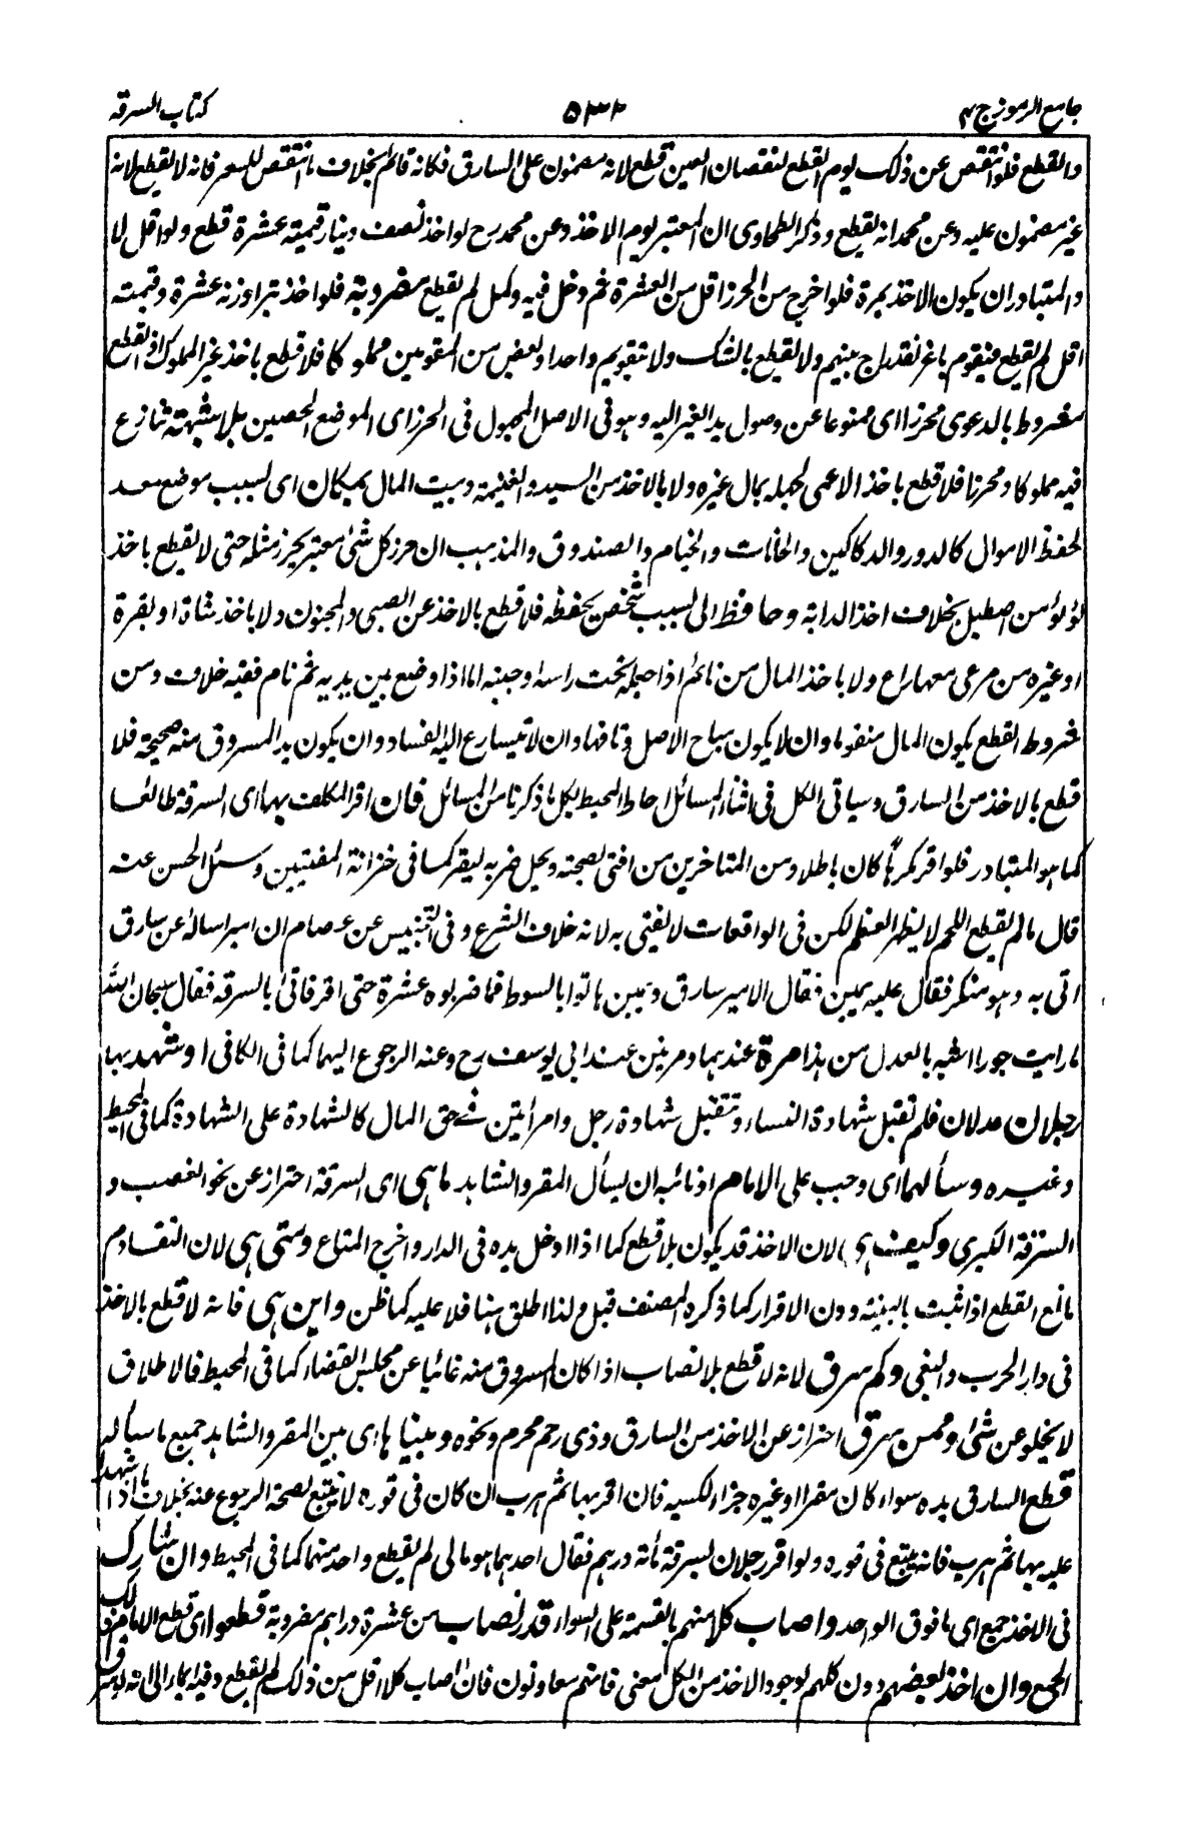 جامع الرموز ج ۴
۵۳۲
كتاب السرقة
والقطع فلو انتقص عن ذلك يوم القطع لنقصان العين قطع لانه مضمون على السارق فكانه قائم بخلاف ما انتقص للسعر فانه لا يقطع لانه
غير مضمون عليه وعن محمد انه يقطع وذكر الطحاوى ان المعتبر يوم الاخذ وعن محمد رح لو اخذ نصف دينار قيمته عشرة قطع ولو اقل لا
والمتبادر ان يكون الاخذ بمرة فلو اخرج من الحرز اقل من العشرة ثم دخل فيه وكمل لم يقطع مضروبة فلو اخذ تبرا وزنه عشرة وقيمته
اقل لم يقطع فيقوم باعز نقد راج بينهم ولا يقطع بالشك ولا بتقويم واحد او بعض من المقومين مملوكا فلا قطع باخذ غير المملوك اذ القطع
مشروط بالدعوى محرزا اى ممنوعا عن وصول يد الغير اليه وهو فى الاصل المجعول فى الحرز اى الموضع الحصين بلا شبهة تنازع
فيه مملوكا ومحرزا فلا قطع باخذ الاعمى لجهله بمال غيره ولا بالاخذ من السيد والغنيمة وبيت المال بمكان اى لسبب موضع معد
لحفظ الاموال كالدور والدكاكين والخانات والخيام والصندوق والمذهب ان حرز كل شئ معتبر بحرز مثله حتى لا يقطع باخذ
لؤلؤ من اصطبل بخلاف اخذ الدابة وحافظ اى لسبب شخص يحفظه فلا قطع بالاخذ عن الصبى والمجنون ولا باخذ شاة او بقرة
او غيره من مرعى معها راع ولا باخذ المال من نائم اذا جعله تحت راسه او جنبه اما اذا وضع بين يديه ثم نام ففيه خلاف ومن
شروط القطع كون المال منقوما وان لا يكون مباح الاصل وتافها وان لا يتسارع اليه الفساد وان يكون يد المسروق منه صحيحة فلا
قطع بالاخذ من السارق وسياتى الكل فى اثناء المسائل احاط المحيط بكل ما ذكرنا من المسائل فان اقر المكلف بها اى السرقة طائعا
كما هو المتبادر فلو اقر مكرها كان باطلا ومن المتاخرين من افتى بصحته ويحل ضربه ليقر كما فى خزانة المفتيين وسئل الحسن عنه
قال ما لم يقطع اللحم لا يظهر العظم لكن فى الواقعات لا يفتى به لانه خلاف الشرع وفى التجنيس عن عصام ان امير اساله عن سارق
اتى به وهو منكر فقال عليه يمين فقال الامير سارق ويمين هاتوا بالسوط فما ضربوه عشرة حتى اقر فاتى بالسرقة فقال سبحان الله
ما رايت جورا اشبه بالعدل من هذا مرة عندهما ومرتين عند ابى يوسف رح وعنه الرجوع اليهما كما فى الكافى او شهد بها
رجلان عدلان فلم تقبل شهادة النساء وتقبل شهادة رجل وامرأتين فى حق المال كالشهادة على الشهادة كما فى المحيط
وغيره وسألهما اى وجب على الامام او نائبه ان يسأل المقر والشاهد ما هى اى السرقة احتراز عن نحو الغصب و
السرقة الكبرى وكيف هى لان الاخذ قد يكون بلا قطع كما اذا ادخل يده فى الدار واخرج المتاع ومتى هى لان التقادم
مانع القطع اذا ثبت بالبينة دون الاقرار كما ذكره المصنف قبل ولذا اطلق هنا فلا عليه كما ظن واين هى فانه لا قطع بالاخذ
فى دار الحرب والبغى وكم سرق لانه لا قطع بلا نصاب اذا كان المسروق منه غائبا عن مجلس القضاء كما فى المحيط فالاطلاق
لا يخلو عن شئ وممن سرق احتراز عن الاخذ من السارق وذى رحم محرم ونحوه وبيناها اى بين المقر والشاهد جميع ما ساله
قطع السارق يده سواء كان مقرا او غيره جزاء لكسبه فان اقر بها ثم هرب ان كان فى فوره لا يتبع لصحة الرجوع عنه بخلاف ما اذا شهدا
عليه بها ثم هرب فانه يتبع فى فوره ولو اقر رجلان بسرقة مأته درهم فقال احدهما هو مالى لم يقطع واحد منهما كما فى المحيط وان شارك
فى الاخذ جمع اى ما فوق الواحد واصاب كلا منهم بالقسمة على السواء قدر نصاب من عشرة دراهم مضروبة قطعوا اى قطع الامام ذلك
الجمع وان اخذ بعضهم دون كلهم لوجود الاخذ من الكل معنى فانهم معاونون فان اصاب كلا اقل من ذلك لم يقطع وفيه ايماء الى انه لو سرق